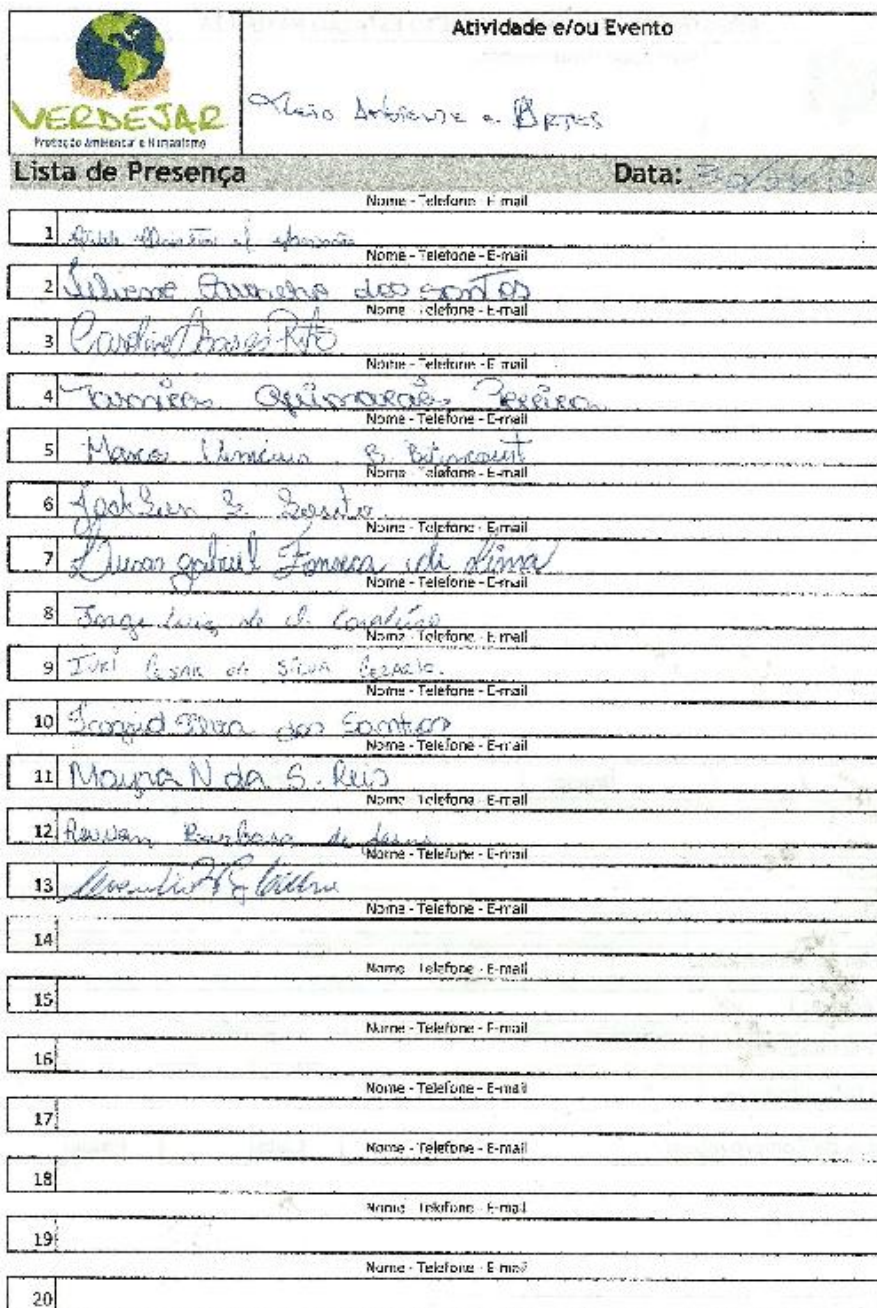 Atividade e/ou Evento
VERDEJAR
Proteção Ambiental e Humanismo
Meio Ambiente e ARTES
Lista de Presença Data:
Nome - Telefone - E-mail
1
Nome - Telefone - E-mail
2 dos santos
Nome - Telefone - E-mail
3 Caroline
Nome - Telefone - E-mail
4 Guimarães Pereira
Nome - Telefone - E-mail
5 Marcos Vinicius B. Bitencourt
Nome - Telefone - E-mail
6
Nome - Telefone - E-mail
7 gabriel Fonseca de Lima
Nome - Telefone - E-mail
8 Jorge Luiz de
Nome - Telefone - E-mail
9 IURI CESAR DA SILVA CEZARIO.
Nome - Telefone - E-mail
10 Silva dos Santos
Nome - Telefone - E-mail
11 Mayra N da S. Reis
Nome - Telefone - E-mail
12 Barbosa de Jesus
Nome - Telefone - E-mail
13
Nome - Telefone - E-mail
14
Nome - Telefone - E-mail
15
Nome - Telefone - E-mail
16
Nome - Telefone - E-mail
17
Nome - Telefone - E-mail
18
Nome - Telefone - E-mail
19
Nome - Telefone - E-mail
20